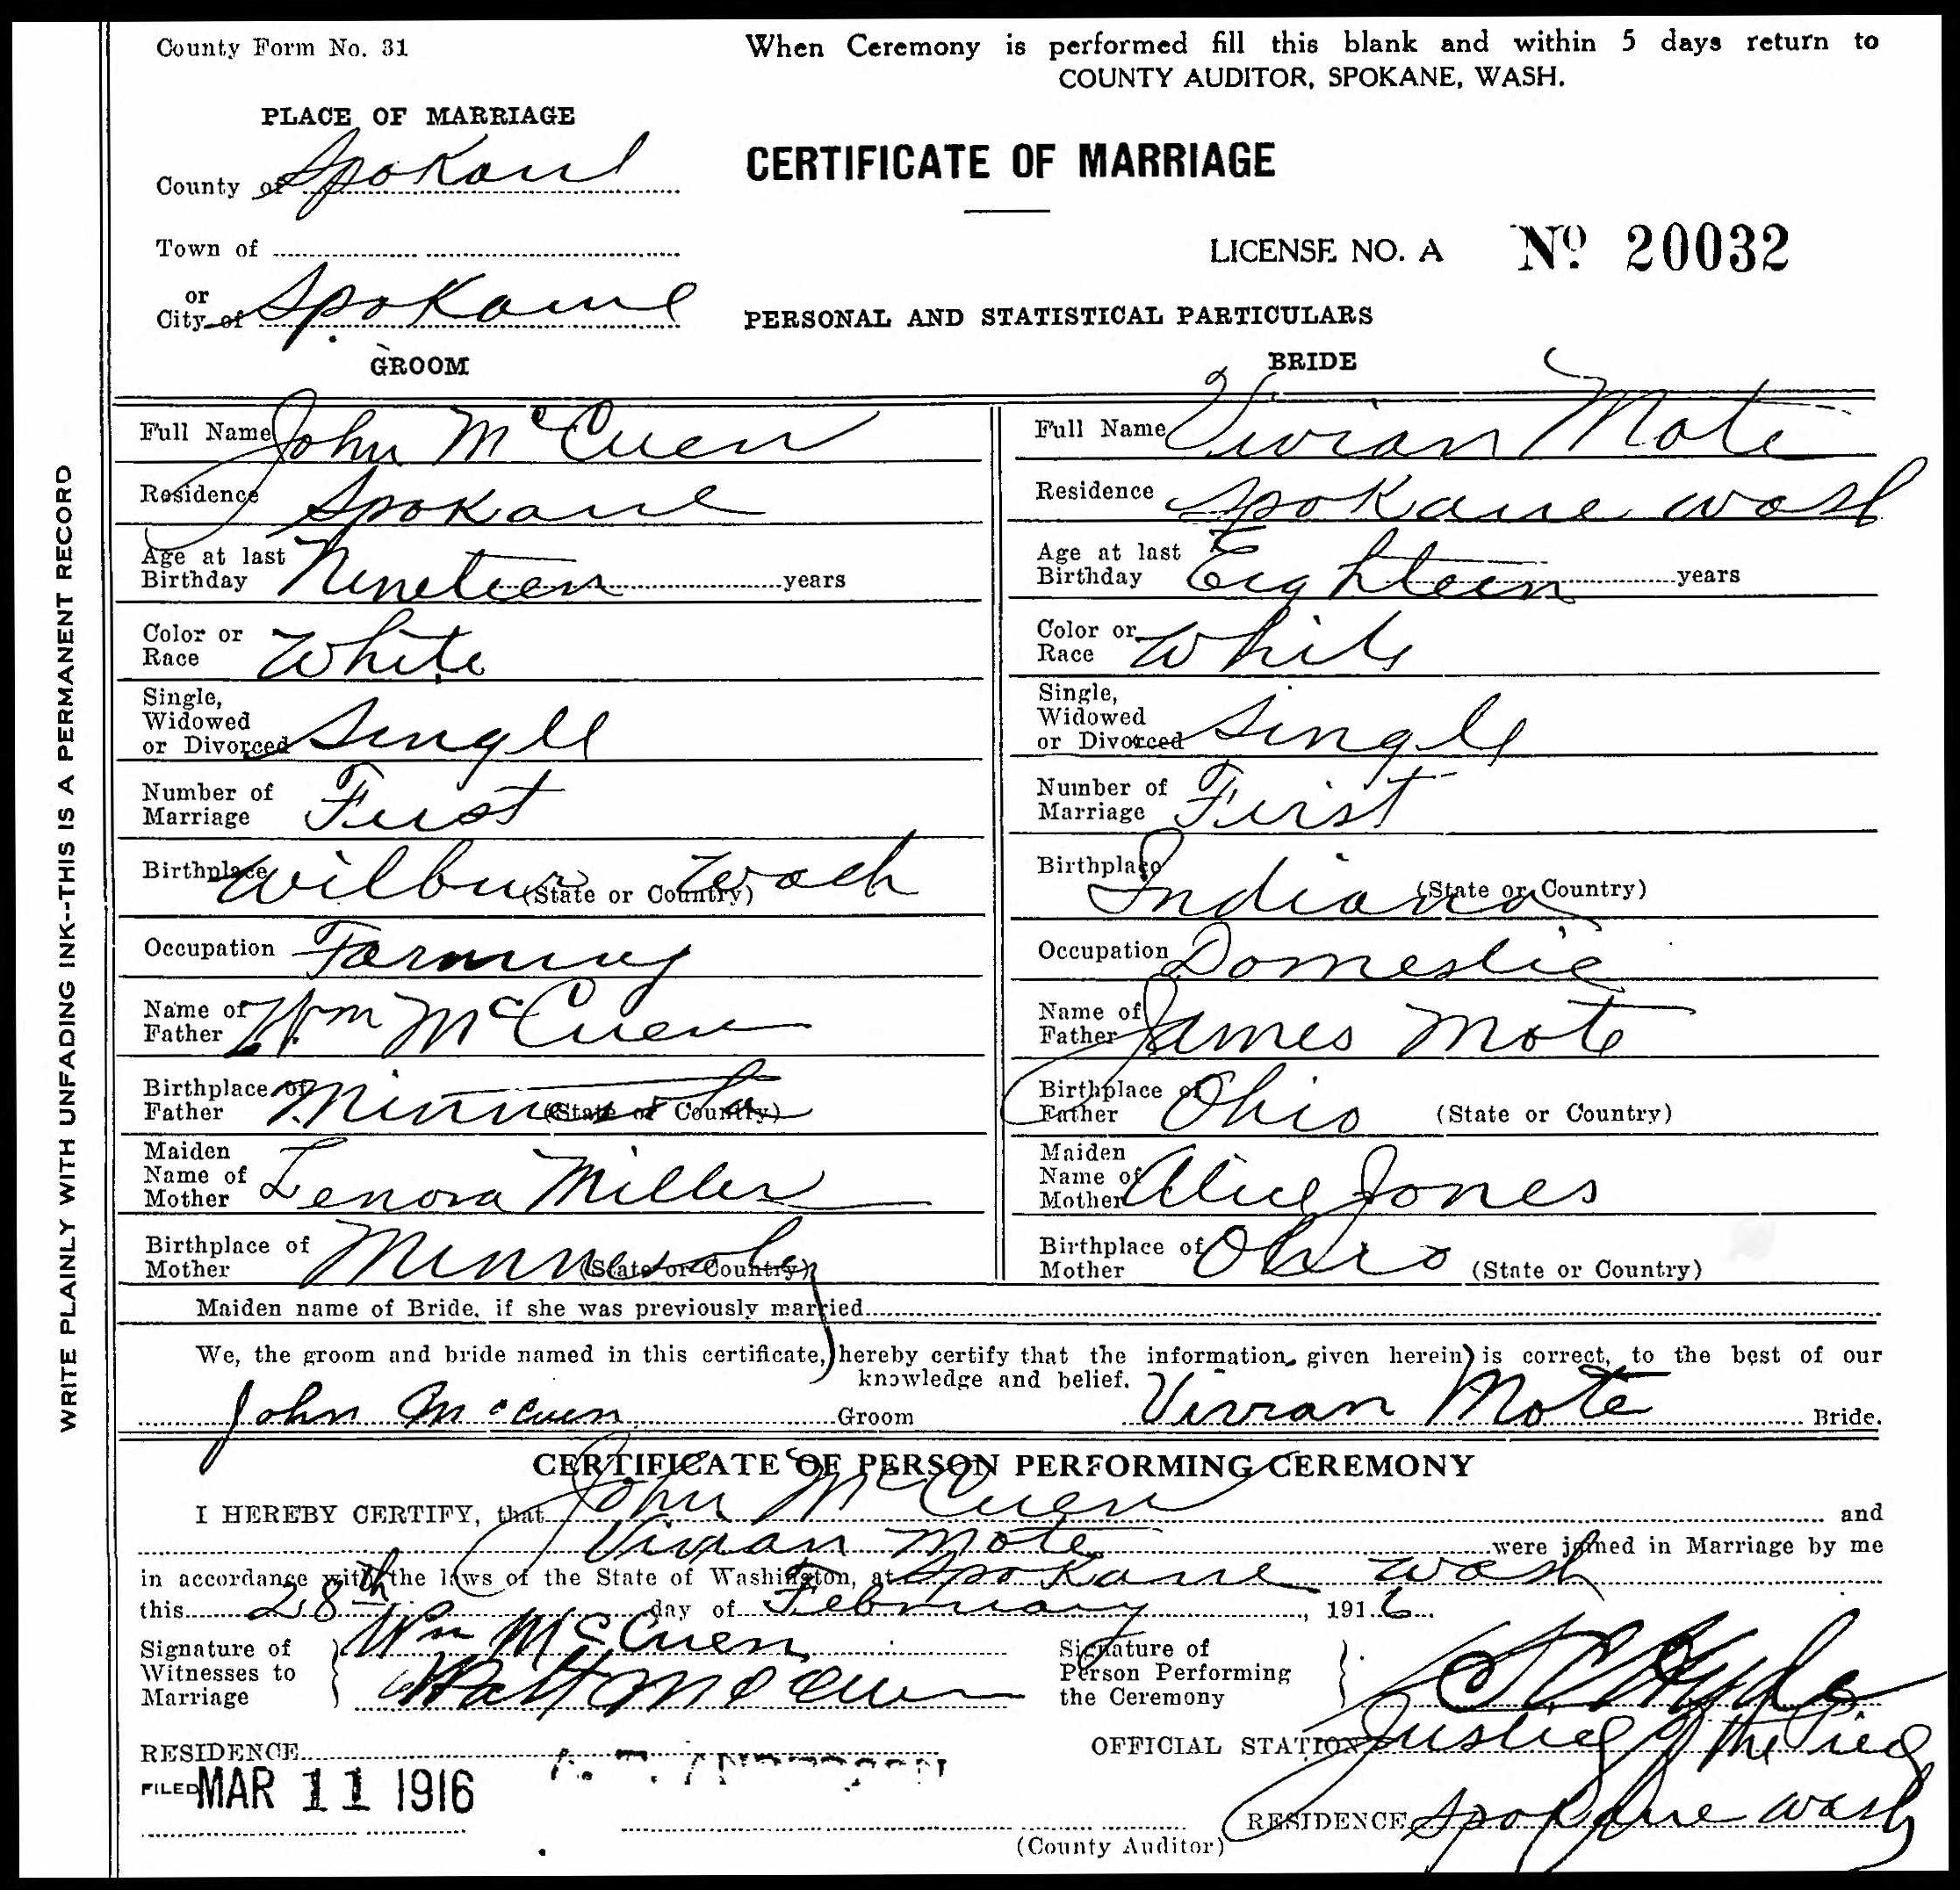 County Form No. 31
When Ceremony is performed fill this blank and within 5 days return to
COUNTY AUDITOR, SPOKANE, WASH.
PLACE OF MARRIAGE
County of Spokane
CERTIFICATE OF MARRIAGE
Town of
LICENSE NO. A Nº 20032
or
City of Spokane
PERSONAL AND STATISTICAL PARTICULARS
GROOM
BRIDE
Full Name John McCuen
Full Name Vivian Mote
Residence Spokane
Residence Spokane Wash
Age at last
Birthday Nineteen years
Age at last
Birthday Eighteen years
Color or
Race White
Color or
Race White
Single,
Widowed
or Divorced Single
Single,
Widowed
or Divorced Single
Number of
Marriage First
Number of
Marriage First
Birthplace Wilbur Wash (State or Country)
Birthplace Indiana (State or Country)
Occupation Farming
Occupation Domestic
Name of
Father Wm McCuen
Name of
Father James Mote
Birthplace of
Father Minnesota (State or Country)
Birthplace of
Father Ohio (State or Country)
Maiden
Name of
Mother Lenora Miller
Maiden
Name of
Mother Alice Jones
Birthplace of
Mother Minnesota (State or Country)
Birthplace of
Mother Ohio (State or Country)
Maiden name of Bride, if she was previously married
We, the groom and bride named in this certificate, hereby certify that the information given herein is correct, to the best of our
knowledge and belief.
John McCuen Groom Vivian Mote Bride.
CERTIFICATE OF PERSON PERFORMING CEREMONY
I HEREBY CERTIFY, that John McCuen and
Vivian Mote were joined in Marriage by me
in accordance with the laws of the State of Washington, at Spokane Wash
this 28th day of February, 1916.
Signature of
Witnesses to
Marriage
Wm McCuen
Walt McCuen
Signature of
Person Performing
the Ceremony
Hyde
RESIDENCE
OFFICIAL STATION Justice of the Peace
FILED MAR 11 1916
RESIDENCE Spokane Wash
(County Auditor)
WRITE PLAINLY WITH UNFADING INK--THIS IS A PERMANENT RECORD